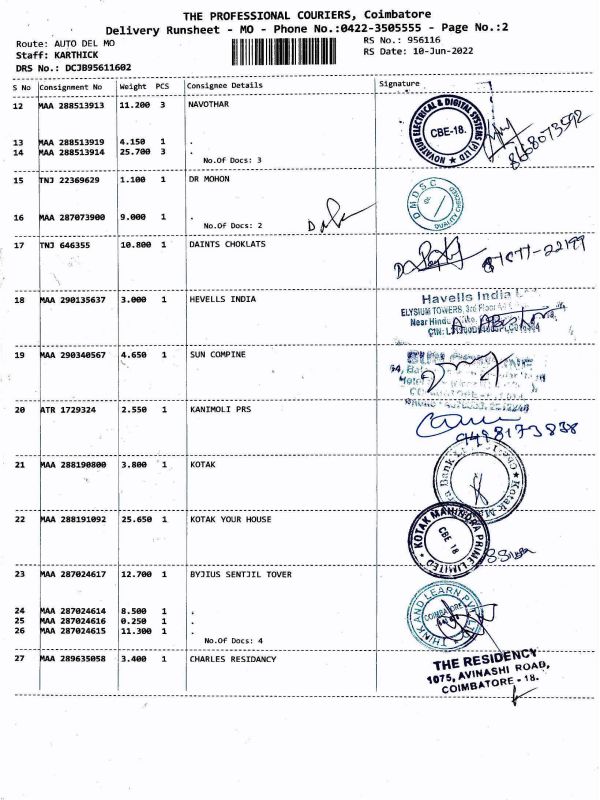 THE PROFESSIONAL COURIERS, Coimbatore
Delivery Runsheet - MO - Phone No.:0422-3505555 - Page No.:2
Route: AUTO DEL MO RS No.: 956116
Staff: KARTHICK RS Date: 10-Jun-2022
DRS No.: DCJB95611602
S No Consignment No Weight PCS Consignee Details Signature
12 MAA 288513913 11.200 3 NAVOTHAR
NOVATEUR ELECTRICAL & DIGITAL SYSTEMS (P) LTD
CBE-18.
8668073592
13 MAA 288513919 4.150 1 .
14 MAA 288513914 25.700 3 .
No.Of Docs: 3
15 TNJ 22369629 1.100 1 DR MOHON
DMDSC
QUALITY CHECKED
16 MAA 287073900 9.000 1 .
No.Of Docs: 2
17 TNJ 646355 10.800 1 DAINTS CHOKLATS
18 MAA 290135637 3.000 1 HEVELLS INDIA
Havells India
ELYSIUM TOWERS, 3rd Floor
Near Hindu
19 MAA 290340567 4.650 1 SUN COMPINE
20 ATR 1729324 2.550 1 KANIMOLI PRS
9498173838
21 MAA 288190800 3.800 1 KOTAK
Kotak Ma Bank
22 MAA 288191092 25.650 1 KOTAK YOUR HOUSE
KOTAK MAHINDRA PRIME LIMITED
CBE 18
23 MAA 287024617 12.700 1 BYJIUS SENTJIL TOVER
THINK AND LEARN PVT LTD
COIMBATORE
24 MAA 287024614 8.500 1 .
25 MAA 287024616 0.250 1 .
26 MAA 287024615 11.300 1 .
No.Of Docs: 4
27 MAA 289635058 3.400 1 CHARLES RESIDANCY
THE RESIDENCY
1075, AVINASHI ROAD,
COIMBATORE - 18.